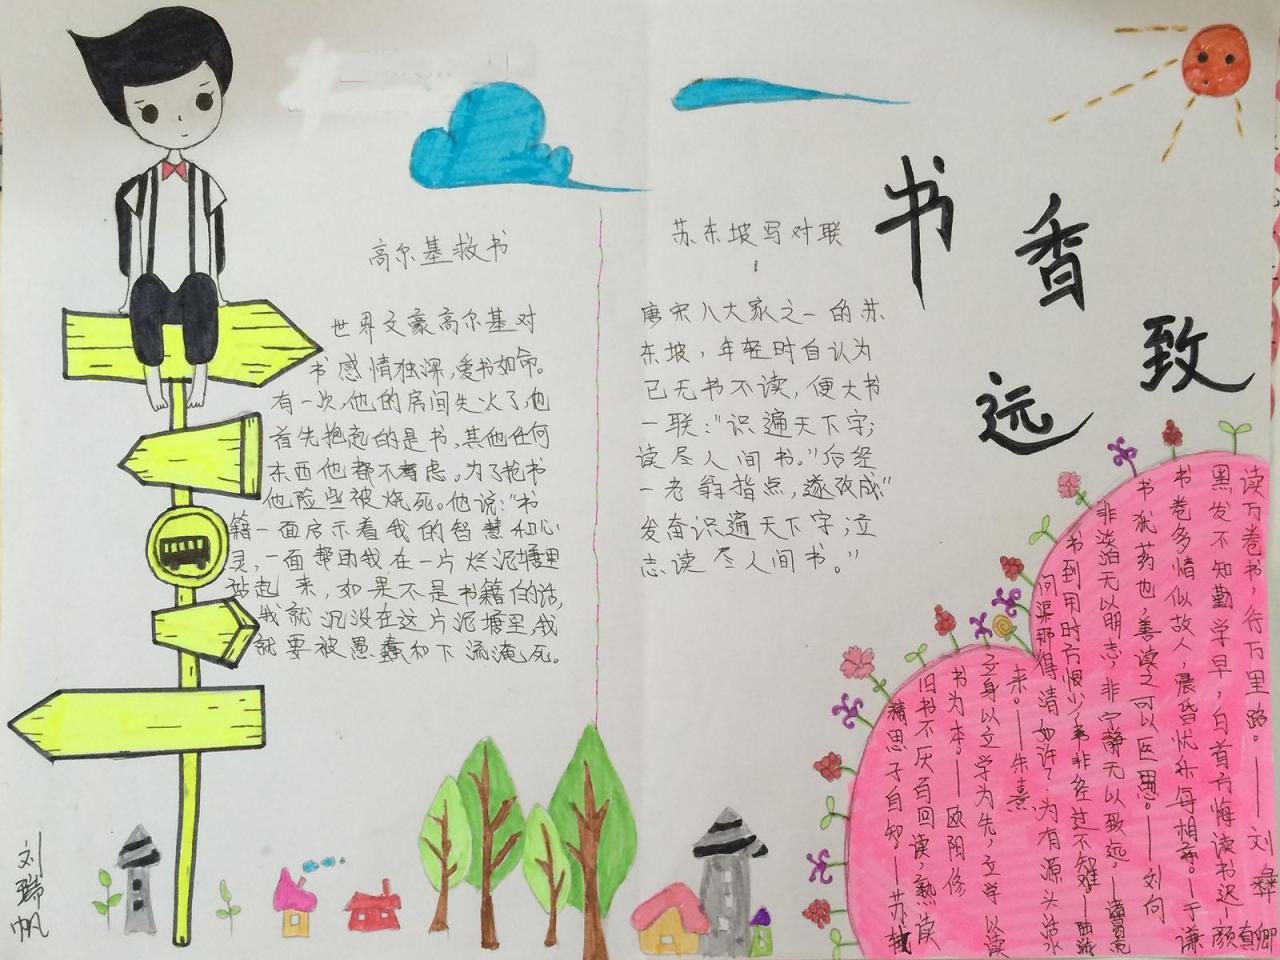 书香致远
高尔基救书
世界文豪高尔基对
书感情独深,爱书如命。
有一次,他的房间失火了,他
首先抱起的是书,其他任何
东西他都不考虑。为了抢书
他险些被烧死。他说:“书
籍一面启示着我的智慧和心
灵,一面帮助我在一片烂泥塘里
站起来,如果不是书籍的话,
我就沉没在这片泥塘里,我
就要被愚蠢和下流淹死。
苏东坡写对联
唐宋八大家之一的苏
东坡,年轻时自认为
已无书不读,便大书
一联:“识遍天下字;
读尽人间书。”后经
一老翁指点,遂改成“
发奋识遍天下字;立
志读尽人间书。”
读万卷书,行万里路。——刘彝
黑发不知勤学早,白首方悔读书迟—颜真卿
书卷多情似故人,晨昏忧乐每相亲。—于谦
书犹药也,善读之可以医愚。——刘向
非淡泊无以明志,非宁静无以致远,—诸葛亮
书到用时方恨少,事非经过不知难—陆游
问渠那得清如许?为有源头活水
来。——朱熹
立身以立学为先,立学以读
书为本。——欧阳修
旧书不厌百回读,熟读
精思子自知——苏轼
刘瑞帆